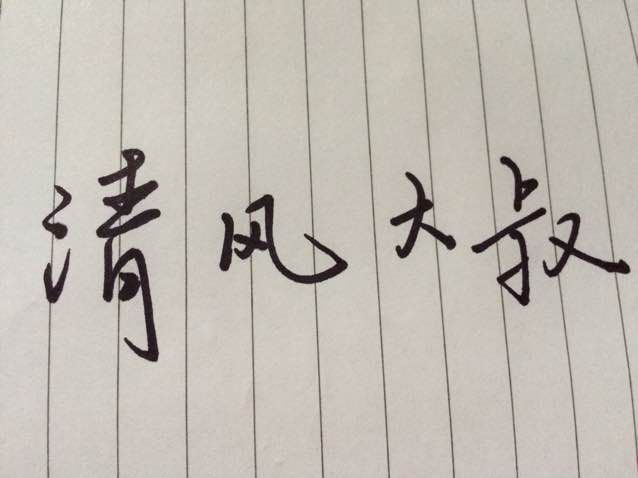 清风大叔